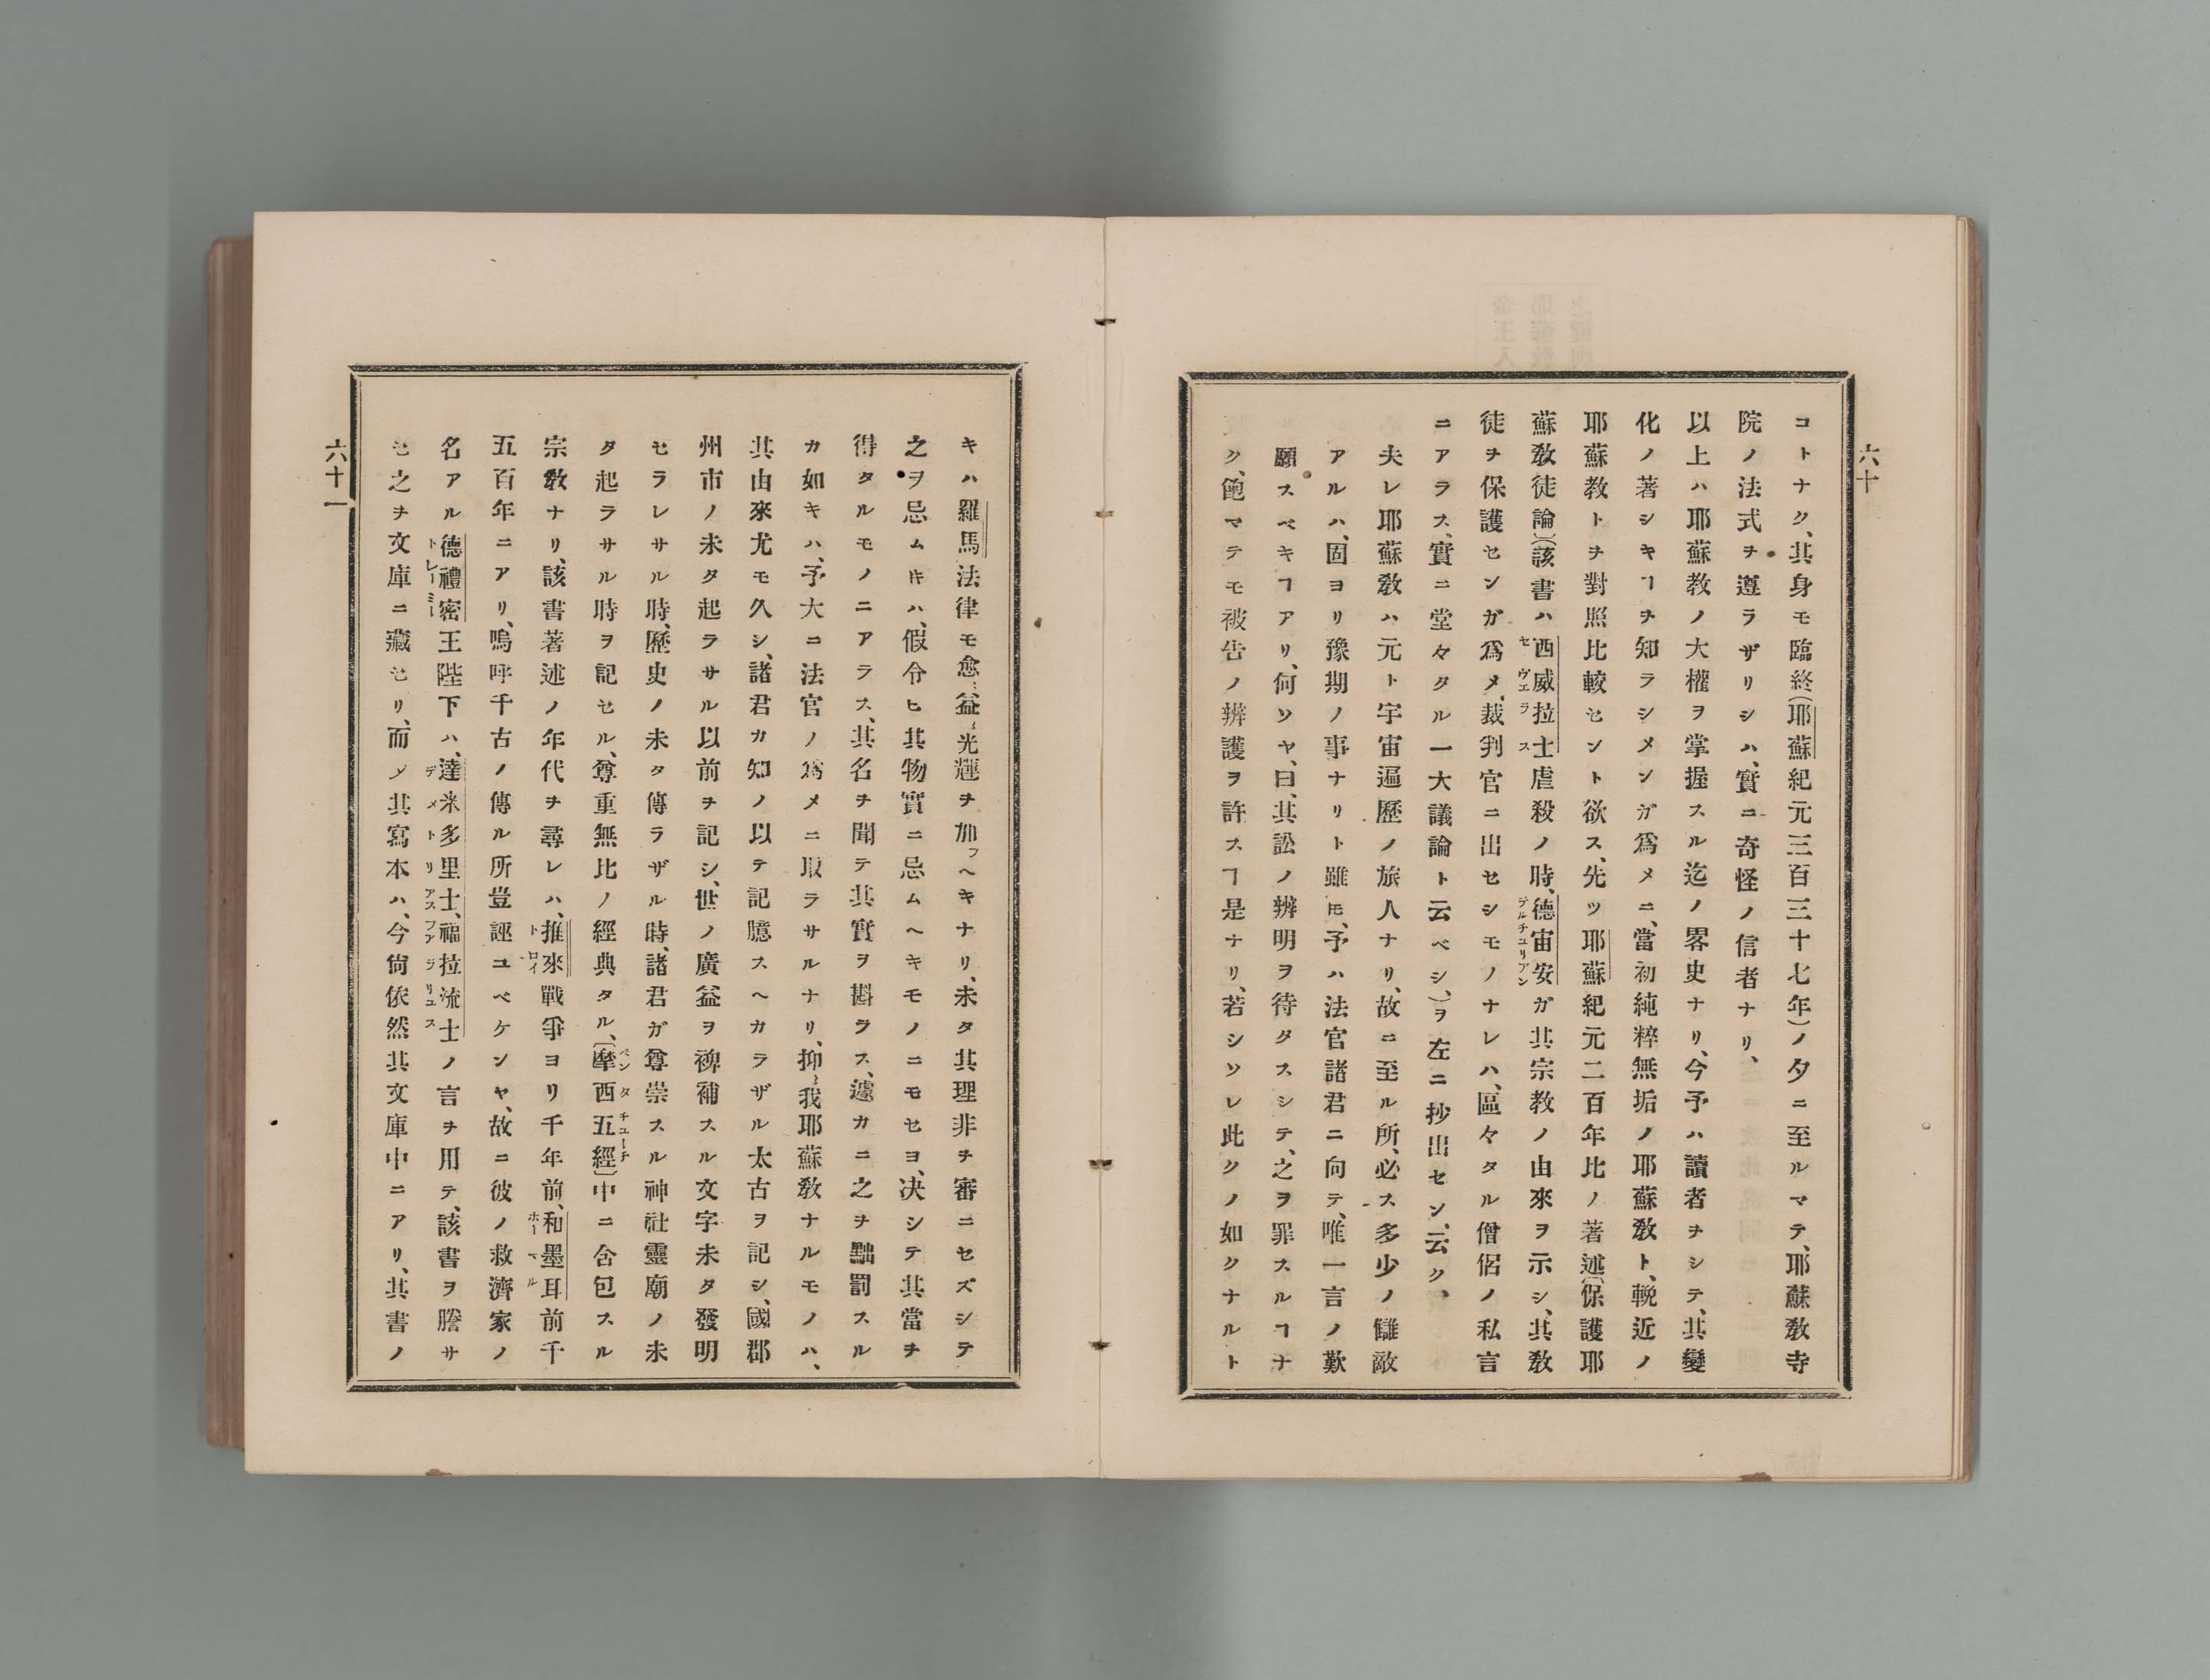 六十
コトナク、其身モ臨終(耶蘇紀元三百三十七年)ノ夕ニ至ルマテ、耶蘇敎寺
院ノ法式ヲ遵ラザリシハ、實ニ奇怪ノ信者ナリ、
以上ハ耶蘇教ノ大權ヲ掌握スル迄ノ畧史ナリ、今予ハ讀者ヲシテ、其變
化ノ著シキヿヲ知ラシメンガ爲メニ、當初純粹無垢ノ耶蘇敎ト、輓近ノ
耶蘇教トヲ對照比較セント欲ス、先ツ耶蘇紀元二百年比ノ著述〔保護耶
蘇敎徒論〕(該書ハ西威拉士虐殺ノ時、德宙安ガ其宗教ノ由來ヲ示シ、其敎
セヴエラス
テルチユリアン
徒ヲ保護センガ爲メ、裁判官ニ出セシモノナレハ、區々タル僧侶ノ私言
ニアラス、實ニ堂々タル一大議論ト云ベシ、)ヲ左ニ抄出セン、云ク、
夫レ耶蘇敎ハ元ト宇宙遍歷ノ旅人ナリ、故ニ至ル所、必ス多少ノ讎敵
アルハ、固ヨリ豫期ノ事ナリト雖𪜈、予ハ法官諸君ニ向テ、唯一言ノ歎
願スベキヿアリ、何ソヤ、曰、其訟ノ辨明ヲ待タスシテ、之ヲ罪スルヿナ
ク、飽マテモ被告ノ辨護ヲ許スヿ是ナリ、若シソレ此クノ如クナルト
キハ羅馬法律モ愈〻益〻光輝ヲ加フヘキナリ、未タ其理非ヲ審ニセズシテ
之ヲ忌ム𪜈ハ、假令ヒ其物實ニ忌ムヘキモノニモセヨ、決シテ其當ヲ
得タルモノニアラス、其名ヲ聞テ其實ヲ斟ラス、遽カニ之ヲ黜罰スル
カ如キハ、予大ニ法官ノ爲メニ取ラサルナリ、抑〻我耶蘇敎ナルモノハ、
其由來尤モ久シ、諸君カ知ノ以テ記臆スヘカラザル太古ヲ記シ、國郡
州市ノ未タ起ラサル以前ヲ記シ、世ノ廣益ヲ裨補スル文字未タ發明
セラレサル時、歷史ノ未タ傳ラザル時、諸君ガ尊崇スル神社靈廟ノ未
タ起ラサル時ヲ記セル、尊重無比ノ經典タル、〔摩西五經〕中ニ含包スル
ペンタチユーチ
宗敎ナリ、該書著述ノ年代ヲ尋レハ、推來戰爭ヨリ千年前、和墨耳前千
トロイ
ホーマル
五百年ニアリ、嗚呼千古ノ傳ル所豈誣ユベケンヤ、故ニ彼ノ救濟家ノ
名アル德禮密王陛下ハ、達米多里士、福拉流士ノ言ヲ用テ、該書ヲ謄サ
トレーミー
デメトリアスファラリユス
セ之ヲ文庫ニ藏セリ、而〆其寫本ハ、今尙依然其文庫中ニアリ、其書ノ
六十一